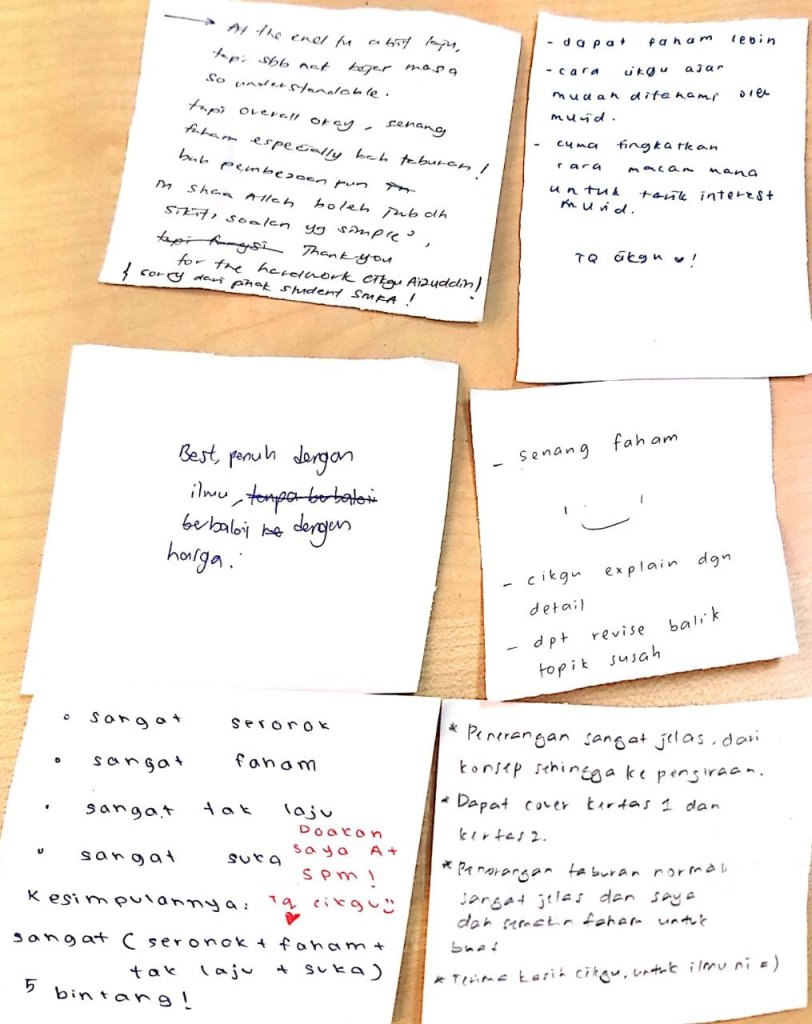 At the end tu a bit laju,
tapi sbb nak kejar masa
so understandable.
tapi overall okay, senang
faham especially bab taburan!
bab pembezaan pun
In shaa Allah boleh jwb dh
sikit², soalan yg simple²,
tapi fungsi Thank you
for the hardwork Cikgu Aizuddin!
& sorry dari pihak student SMKA!
- dapat faham lebih
- cara cikgu ajar
mudah difahami oleh
murid.
- cuma tingkatkan
cara macam mana
untuk tarik interest
murid.
TQ cikgu ♥!
Best, penuh dengan
ilmu, tanpa berbaloi
berbaloi ke dengan
harga.
- senang faham
- cikgu explain dgn
detail
- dpt revise balik
topik susah
• sangat seronok
• sangat faham
• sangat tak laju
• sangat suka
Doakan
saya A+
SPM!
TQ cikgu
Kesimpulannya:
sangat (seronok + faham +
tak laju + suka)
5 bintang!
* Penerangan sangat jelas, dari
konsep sehingga ke pengiraan.
* Dapat cover kertas 1 dan
kertas 2.
* Penerangan taburan normal
sangat jelas dan saya
dah semakin faham untuk
buat
* Terima kasih cikgu, untuk ilmu ni =)